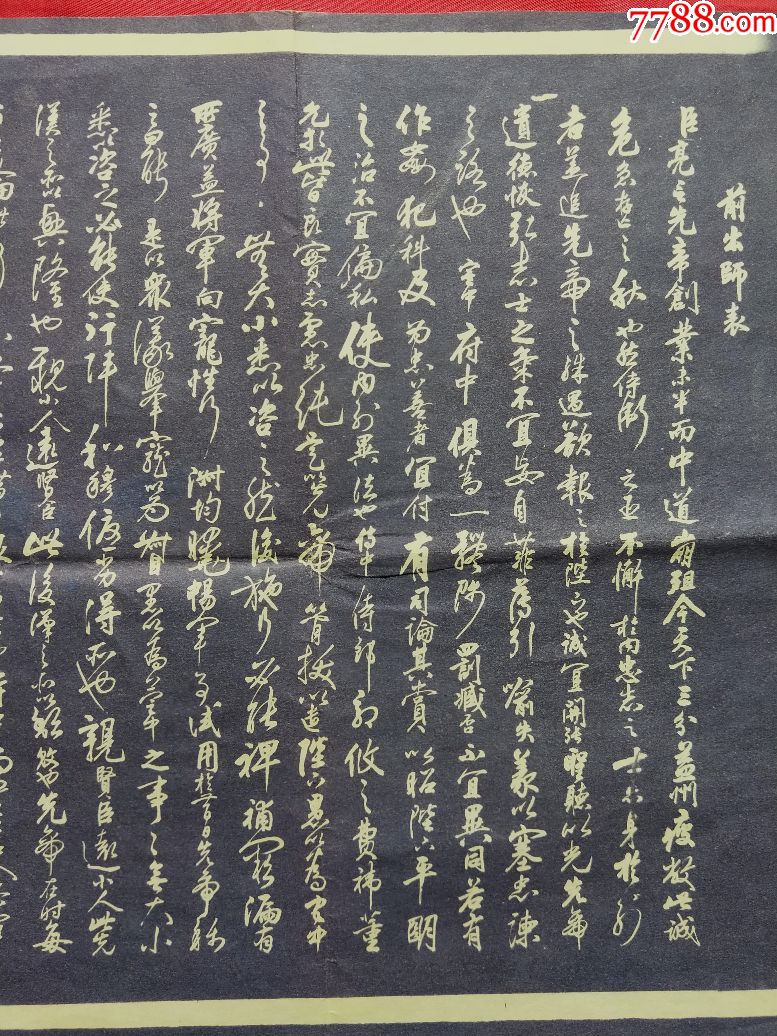 7788.com
前出師表
臣亮言先帝創業未半而中道崩殂今天下三分益州疲敝此誠
危急存亡之秋也然侍衛之臣不懈於內忠志之士忘身於外
者蓋追先帝之殊遇欲報之於陛下也誠宜開張聖聽以光先帝
遺德恢弘志士之氣不宜妄自菲薄引喻失義以塞忠諫
之路也宮中府中俱為一體陟罰臧否不宜異同若有
作姦犯科及為忠善者宜付有司論其賞以昭陛下平明
之治不宜偏私使內外異法也侍中侍郎郭攸之費禕董
允等此皆良實志慮忠純是以先帝簡拔以遺陛下愚以為宮中
之事事無大小悉以咨之然後施行必能裨補闕漏有
所廣益將軍向寵性行淑均曉暢軍事試用於昔日先帝稱
之曰能是以眾議舉寵以為督愚以為營中之事事無大小
悉以咨之必能使行陣和穆優劣得所也親賢臣遠小人此先
漢之所以興隆也親小人遠賢臣此後漢之所以傾頹也先帝在時每